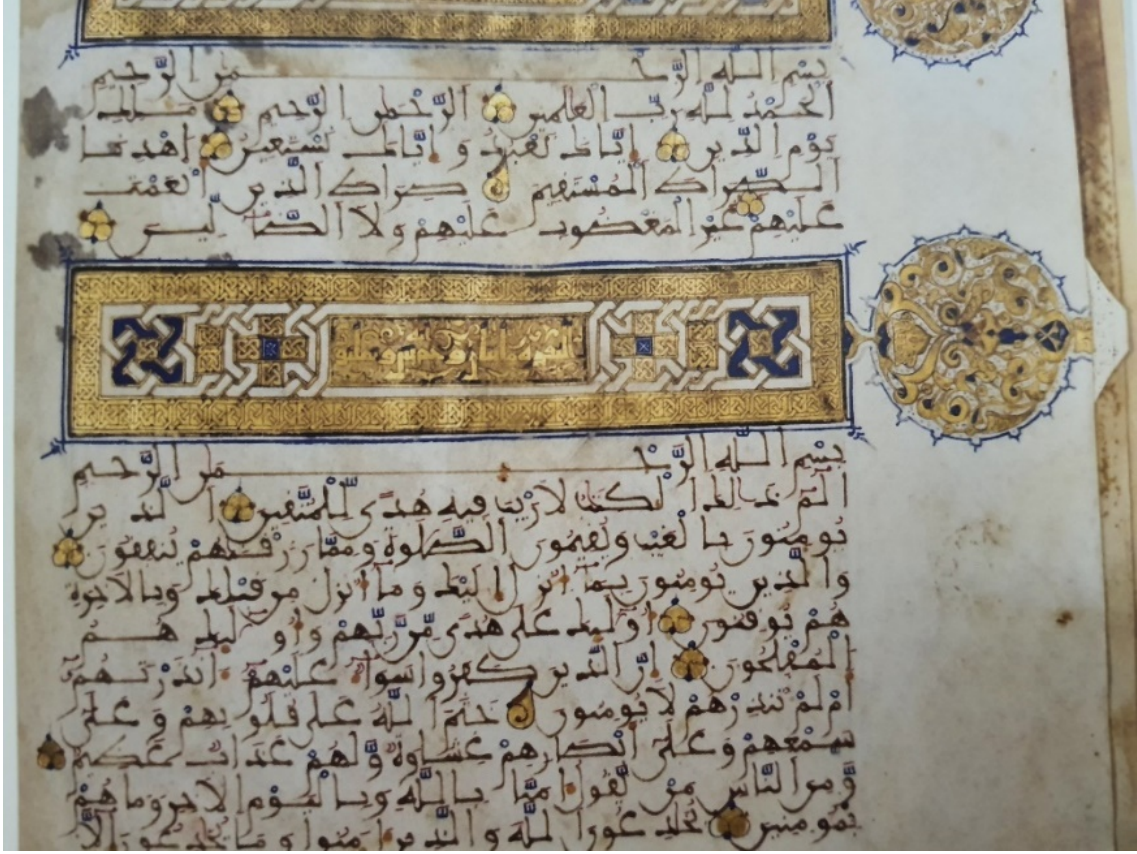 بِسْمِ اللَّهِ الرَّحْمَنِ الرَّحِيمِ
الْحَمْدُ لِلَّهِ رَبِّ الْعَلَمِينَ الرَّحْمَنِ الرَّحِيمِ مَلِكِ
يَوْمِ الدِّينِ إِيَّاكَ نَعْبُدُ وَإِيَّاكَ نَسْتَعِينُ اهْدِنَا
الصِّرَاطَ الْمُسْتَقِيمَ صِرَاطَ الَّذِينَ أَنْعَمْتَ
عَلَيْهِمْ غَيْرِ الْمَغْضُوبِ عَلَيْهِمْ وَلَا الضَّالِّينَ
بِسْمِ اللَّهِ الرَّحْمَنِ الرَّحِيمِ
الَمِّ ذَلِكَ الْكِتَبُ لَا رَيْبَ فِيهِ هُدًى لِّلْمُتَّقِينَ الَّذِينَ
يُومِنُونَ بِالْغَيْبِ وَيُقِيمُونَ الصَّلَوةَ وَمِمَّا رَزَقْنَهُمْ يُنْفِقُونَ
وَالَّذِينَ يُومِنُونَ بِمَا أُنْزِلَ إِلَيْكَ وَمَا أُنْزِلَ مِنْ قَبْلِكَ وَبِالْآخِرَةِ
هُمْ يُوقِنُونَ أُوْلَئِكَ عَلَى هُدًى مِّن رَّبِّهِمْ وَأُوْلَئِكَ هُمُ
الْمُفْلِحُونَ إِنَّ الَّذِينَ كَفَرُوا سَوَاءٌ عَلَيْهِمْ ءَانْذَرْتَهُمْ
أَمْ لَمْ تُنْذِرْهُمْ لَا يُومِنُونَ خَتَمَ اللَّهُ عَلَى قُلُوبِهِمْ وَعَلَى
سَمْعِهِمْ وَعَلَى أَبْصَرِهِمْ غِشَوَةٌ وَلَهُمْ عَذَابٌ عَظِيمٌ
وَمِنَ النَّاسِ مَنْ يَّقُولُ ءَامَنَّا بِاللَّهِ وَبِالْيَوْمِ الْآخِرِ وَمَا هُمْ
بِمُومِنِينَ يُخَدِعُونَ اللَّهَ وَالَّذِينَ ءَامَنُوا وَمَا يُخَدِعُونَ إِلَّا